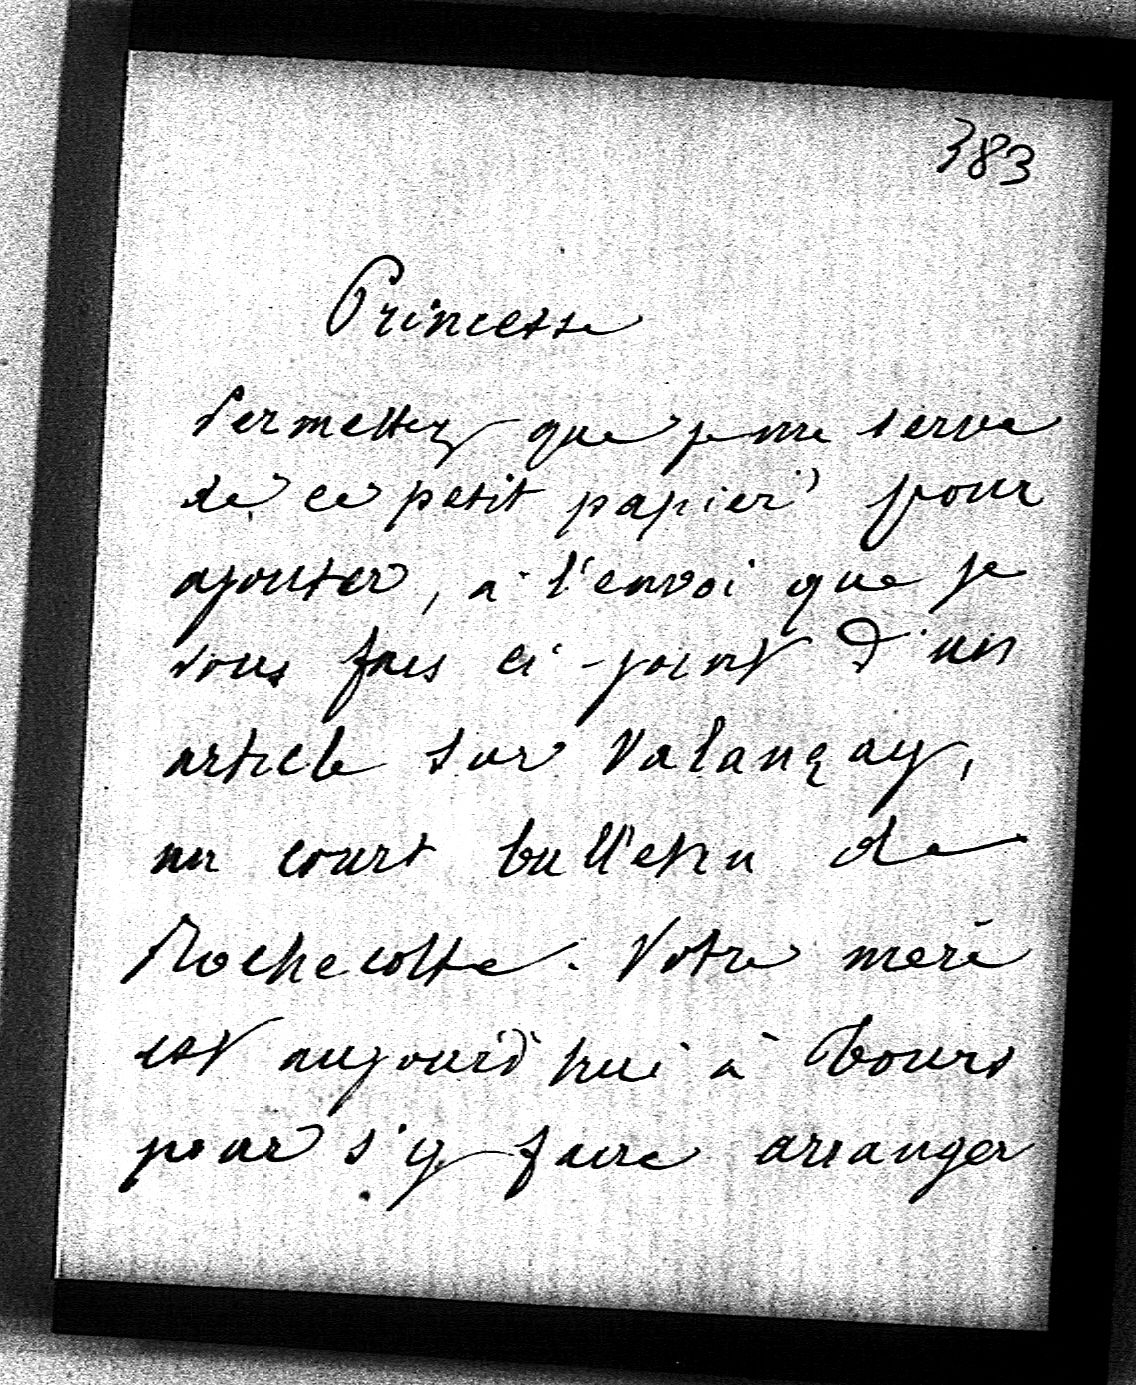 383
Princesse
Permettez que je me serve
de ce petit papier pour
ajouter, à l'envoi que je
vous fais ci-joint d'un
article sur Valançay,
un court bulletin de
Rochecotte. Votre mère
est aujourd'hui à Tours
pour s'y faire arranger